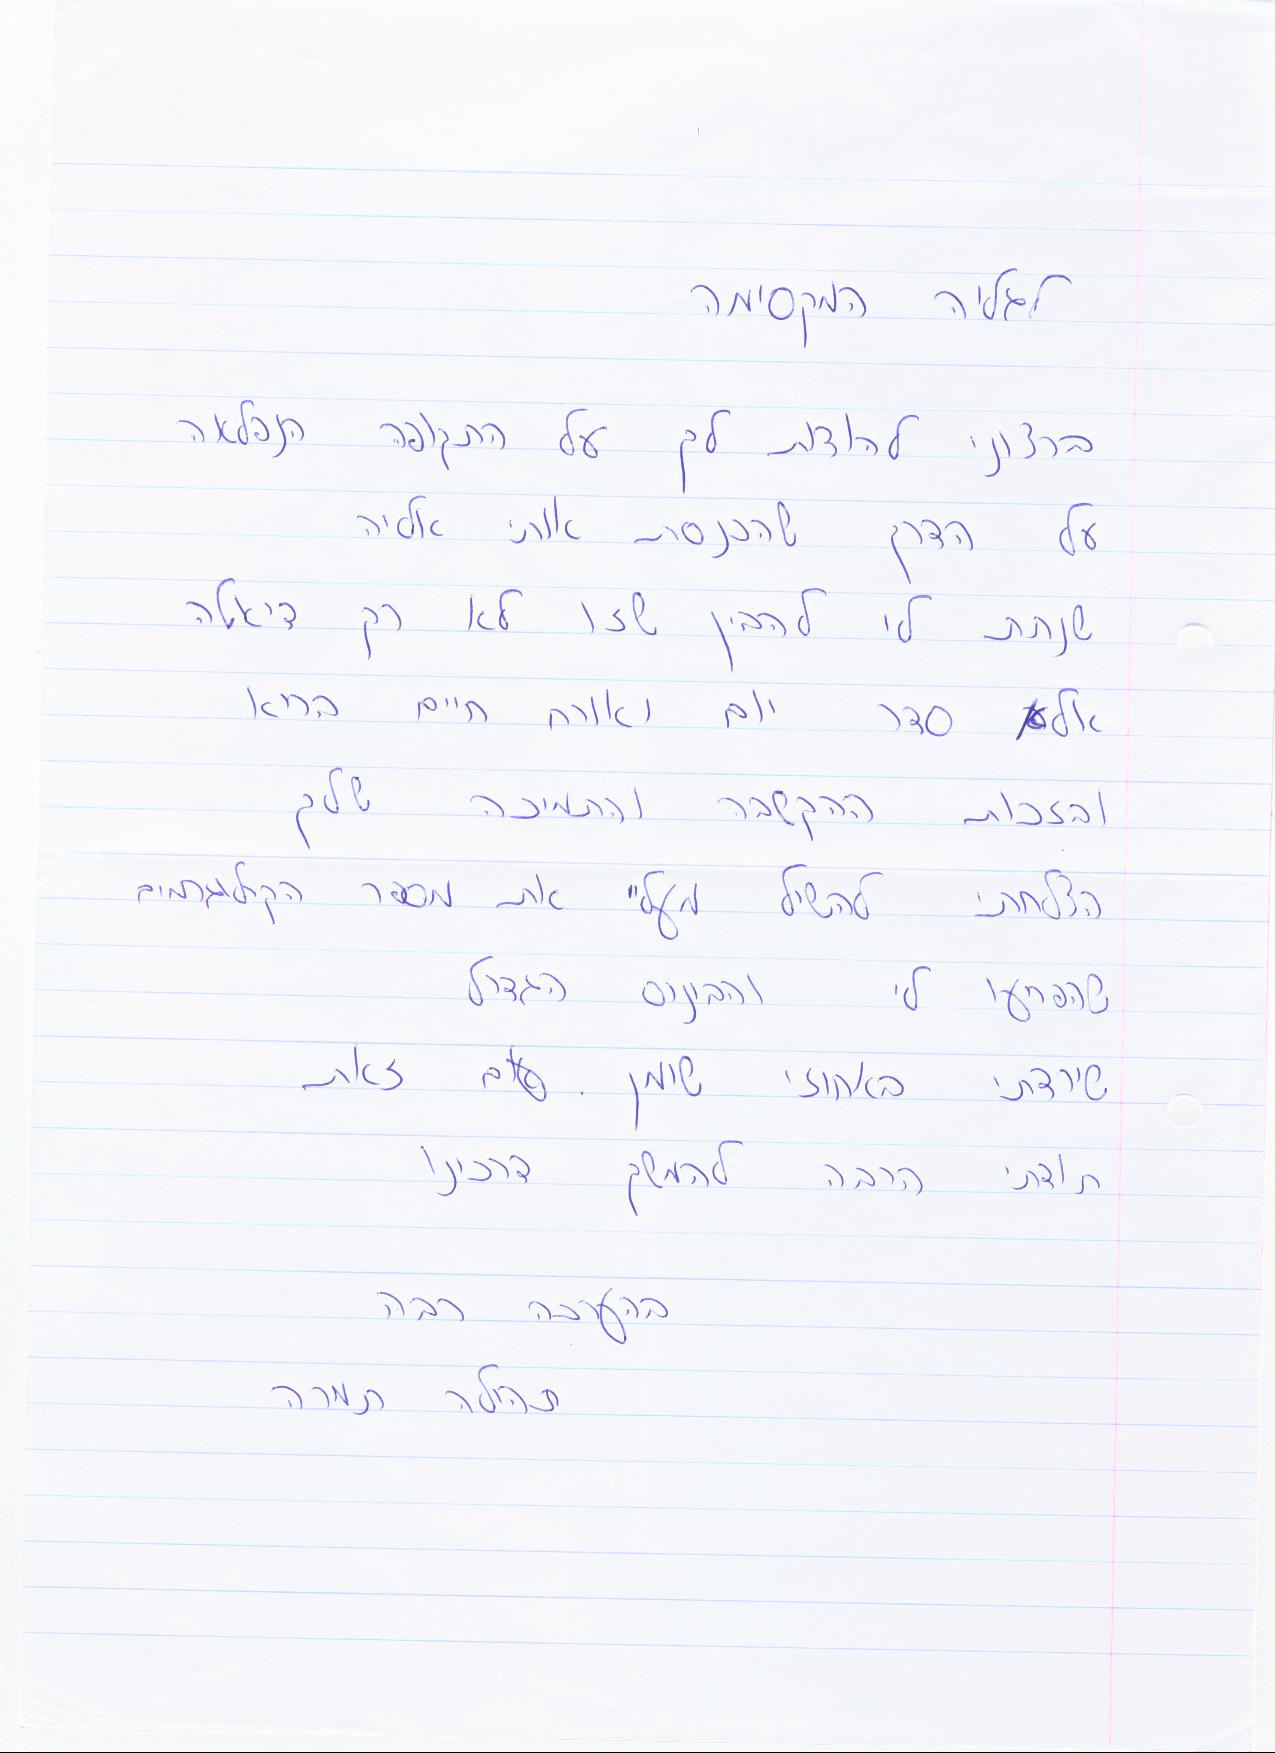 לגליה המקסימה
ברצוני להודות לך על התקופה הנפלאה
על הדרך שהכנסת אותי אליה
שנתת לי להבין שזו לא רק דיאטה
אלא סדר יום ואורח חיים בריא
ובזכות ההקשבה והתמיכה שלך
הצלחתי להשיל מעליי את מספר הקילוגרמים
שהפריעו לי והבינוס הגדול
שירדתי באחוזי שומן. עם זאת
תודתי הרבה להמשך דרכינו
בהערכה רבה
תהילה תמרה